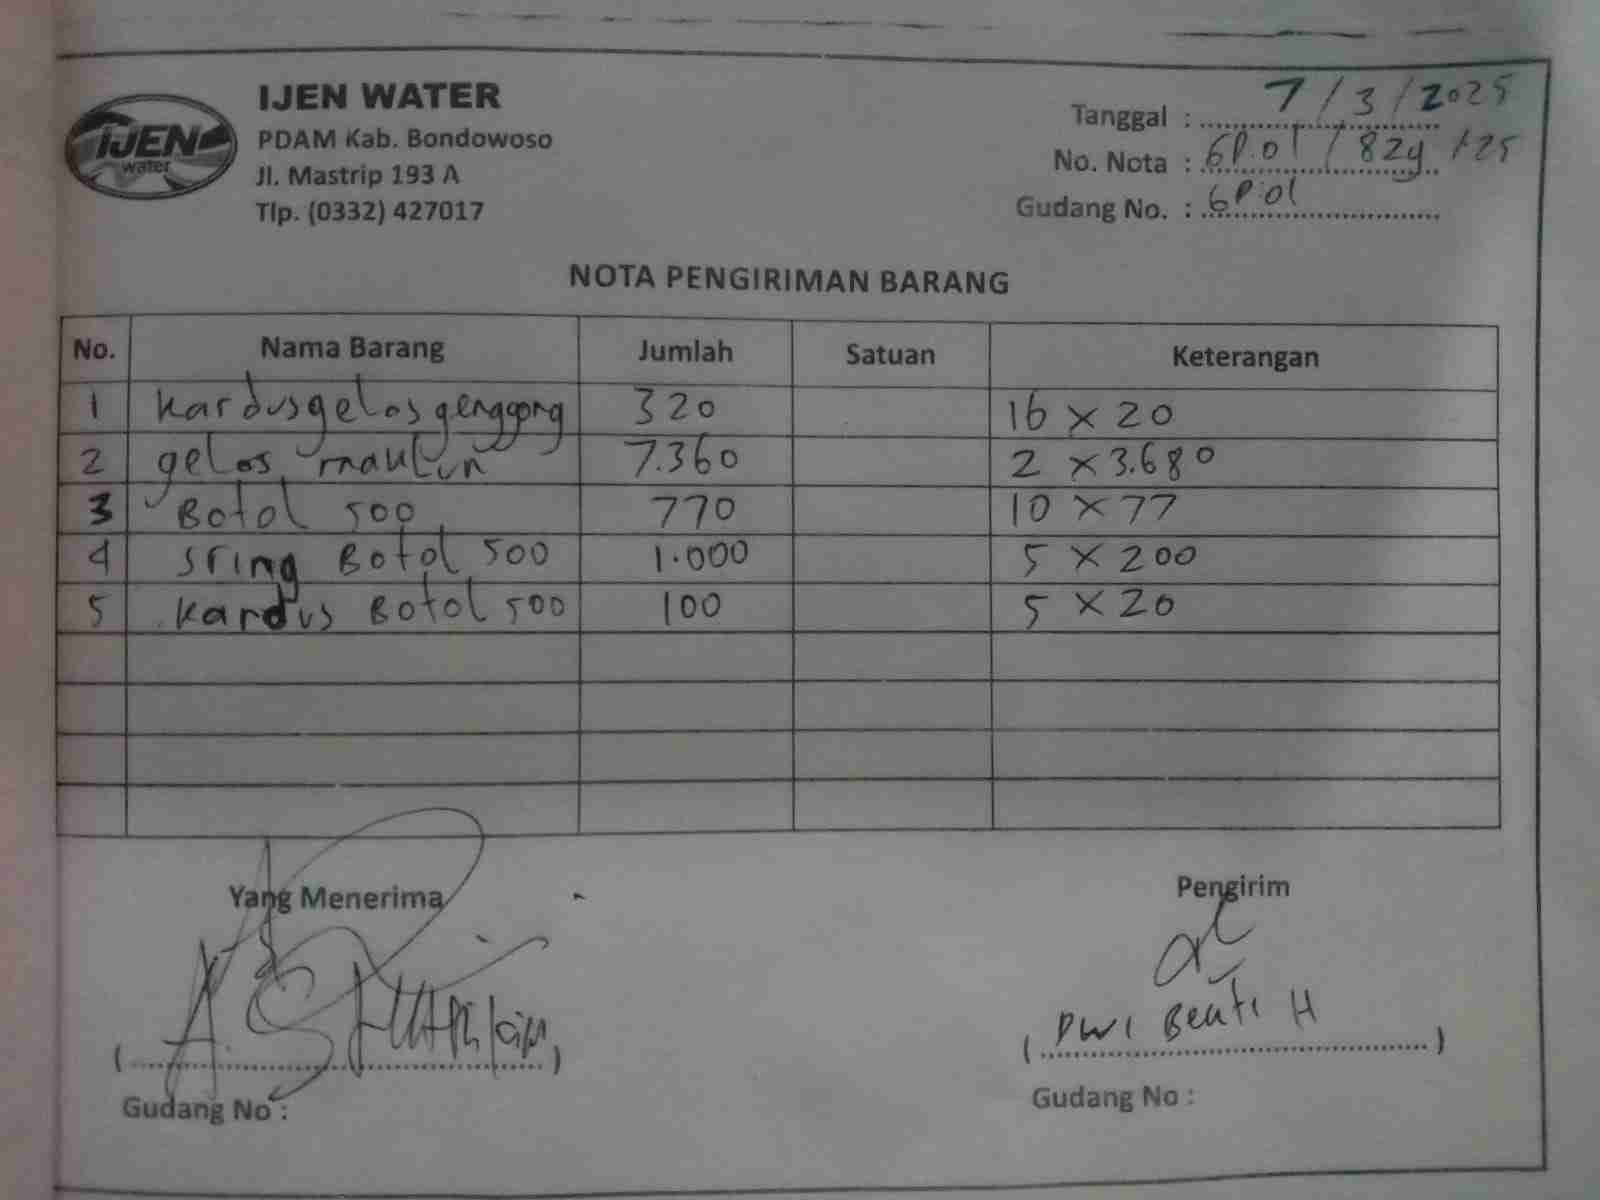 IJEN
water
IJEN WATER
PDAM Kab. Bondowoso
Jl. Mastrip 193 A
Tlp. (0332) 427017
Tanggal : 7/3/2025
No. Nota : GP.01 / 82g /25
Gudang No. : GP.01
NOTA PENGIRIMAN BARANG
No. Nama Barang Jumlah Satuan Keterangan
1 kardus gelas genggong 320 16 x 20
2 gelas 7.360 2 x 3.680
3 Botol 500 770 10 x 77
4 sring Botol 500 1.000 5 x 200
5 kardus Botol 500 100 5 x 20
Yang Menerima Pengirim
Dwi H
Gudang No : Gudang No :